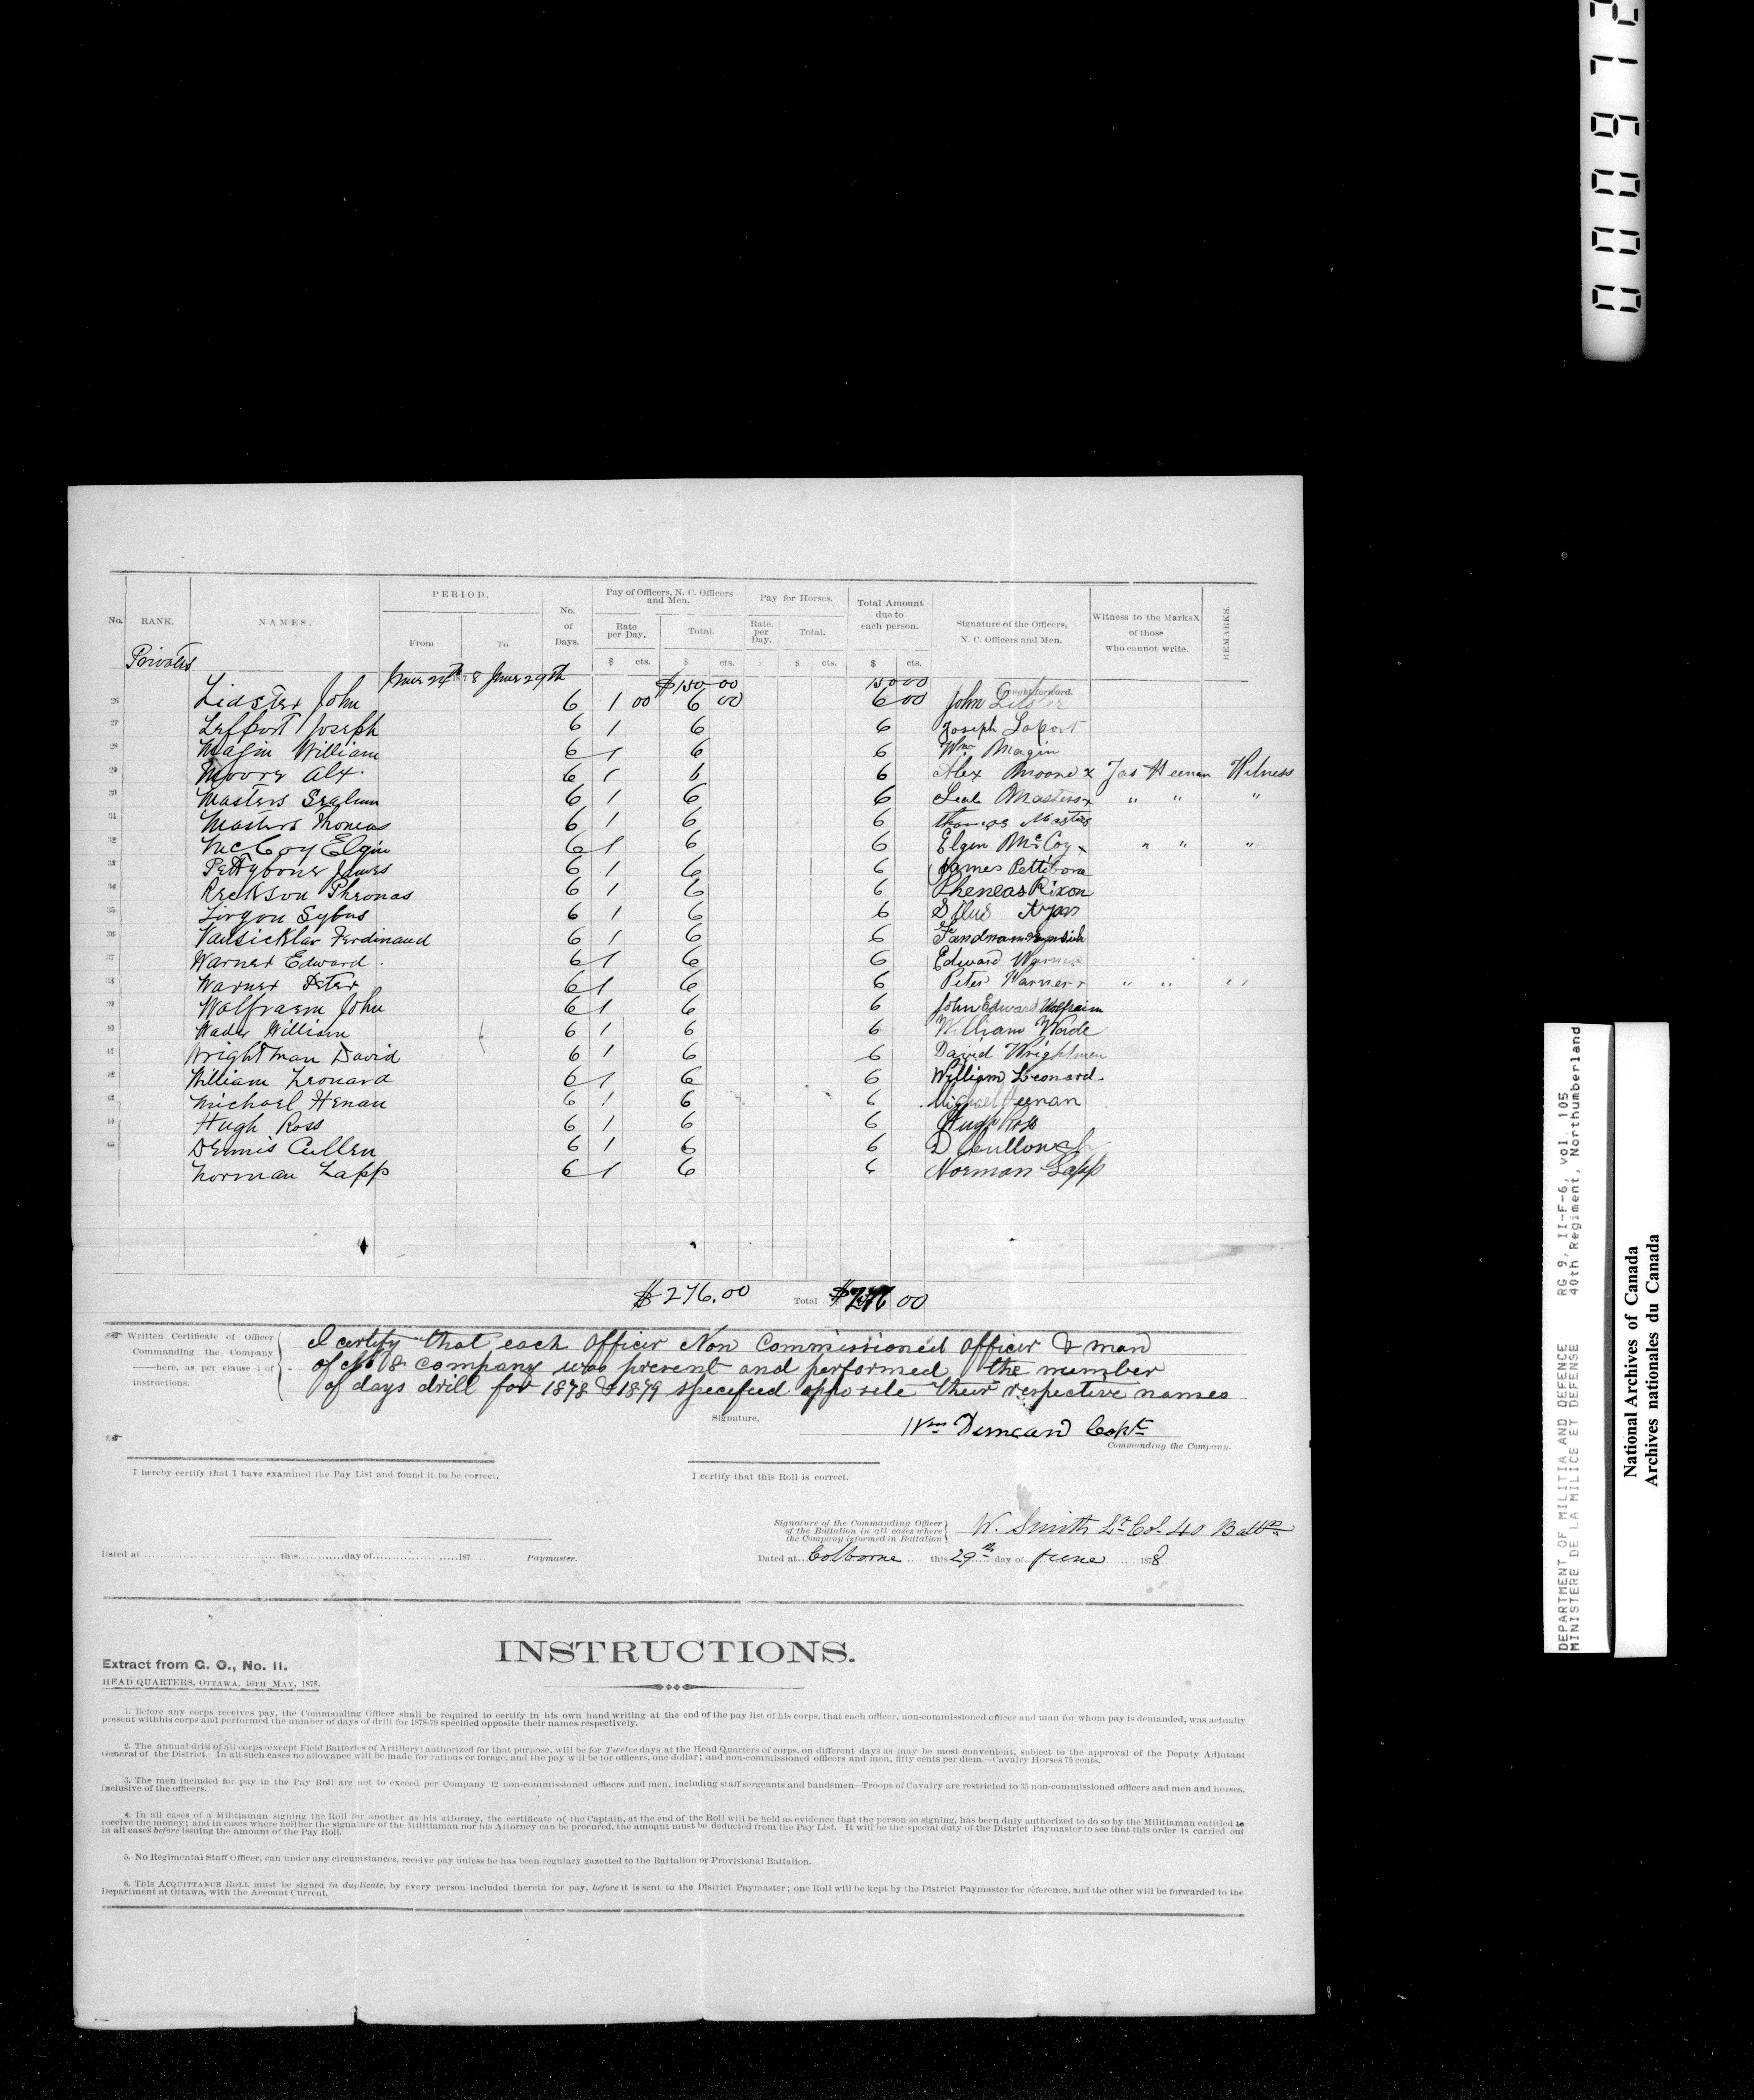 000972
No. RANK. NAMES. PERIOD. From To No. of Days. Pay of Officers, N. C. Officers and Men. Rate per Day. Total. Pay for Horses. Rate. per Day. Total. Total Amount due to each person. Signature of the Officers, N. C. Officers and Men. Witness to the Marks X of those who cannot write. REMARKS.
$ cts. $ cts. $ $ cts. $ cts.
Privates
June 24th 78 June 29th $150 00 150 00 Brought forward.
26 Lidster John 6 1 00 6 00 6 00 John Lidster
27 Leffort Joseph 6 1 6 6 Joseph Laport
28 Magin William 6 1 6 6 Wm Magin
29 Moore Alx. 6 1 6 6 Alex Moore x Jas Heenan Witness
30 Masters 6 1 6 6 Masters x " " "
31 Masters Thomas 6 1 6 6 thomas Masters
32 McCoy Elgin 6 1 6 6 Elgin McCoy x " " "
33 Pettybone James 6 1 6 6 James Pettibone
34 Reckson Pheonas 6 1 6 6 Pheneas Rixon
35 6 1 6 6
36 Vansicklar Ferdinand 6 1 6 6
37 Warner Edward. 6 1 6 6 Edward Warner
38 Warner Peter 6 1 6 6 Peter Warner x " " " "
39 Wolfraem John 6 1 6 6 John Edward Wolfraim
40 Wade William 6 1 6 6 William Wade
41 Wrightman David 6 1 6 6 David Wrightmen
42 William Leonard 6 1 6 6 William Leonard.
43 Michael Henan 6 1 6 6 Michael Heenan
44 Hugh Ross 6 1 6 6 Hugh Ross
45 Dennis Cullen 6 1 6 6 D
Norman Lapp 6 1 6 6 Norman Lapp
$276.00 Total $276 00
Written Certificate of Officer Commanding the Company —here, as per clause 1 of instructions.
I certify that each Officer Non Commissioned Officer & man
of No 8 company was present and performed the number
of days drill for 1878 & 1879 specified opposite their respective names
Signature, Wm Duncan Capt
Commanding the Company.
I hereby certify that I have examined the Pay List and found it to be correct.
I certify that this Roll is correct.
Signature of the Commanding Officer of the Battalion in all cases where the Company is formed in Battalion W. Smith Lt Col. 40 Battn
Dated at this day of 187 Paymaster.
Dated at Colborne this 29th day of June 1878
INSTRUCTIONS.
Extract from G. O., No. 11.
HEAD QUARTERS, OTTAWA, 16TH MAY, 1878.
1. Before any corps receives pay, the Commanding Officer shall be required to certify in his own hand writing at the end of the pay list of his corps, that each officer, non-commissioned officer and man for whom pay is demanded, was actually
present withhis corps and performed the number of days of drill for 1878-79 specified opposite their names respectively.
2. The annual drill of all corps (except Field Batteries of Artillery) authorized for that purpose, will be for Twelve days at the Head Quarters of corps, on different days as may be most convenient, subject to the approval of the Deputy Adjutant
General of the District. In all such cases no allowance will be made for rations or forage, and the pay will be for officers, one dollar; and non-commissioned officers and men, fifty cents per diem.—Cavalry Horses 75 cents.
3. The men included for pay in the Pay Roll are not to exceed per Company 42 non-commissioned officers and men, including staff sergeants and bandsmen—Troops of Cavalry are restricted to 35 non-commissioned officers and men and horses,
inclusive of the officers.
4. In all cases of a Militiaman signing the Roll for another as his attorney, the certificate of the Captain, at the end of the Roll will be held as evidence that the person so signing, has been duly authorized to do so by the Militiaman entitled to
receive the money; and in cases where neither the signature of the Militiaman nor his Attorney can be procured, the amount must be deducted from the Pay List. It will be the special duty of the District Paymaster to see that this order is carried out
in all cases before issuing the amount of the Pay Roll.
5. No Regimental Staff Officer, can under any circumstances, receive pay unless he has been regulary gazetted to the Battalion or Provisional Battalion.
6. This ACQUITTANCE ROLL must be signed in duplicate, by every person included therein for pay, before it is sent to the District Paymaster; one Roll will be kept by the District Paymaster for reference, and the other will be forwarded to the
Department at Ottawa, with the Account Current.
DEPARTMENT OF MILITIA AND DEFENCE RG 9, II-F-6, vol. 105
MINISTERE DE LA MILICE ET DEFENSE 40th Regiment, Northumberland
National Archives of Canada
Archives nationales du Canada